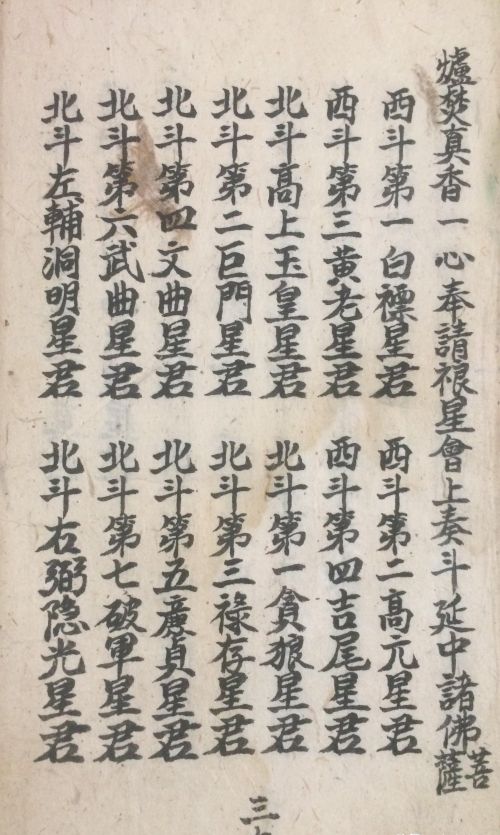 爐焚真香一心奉請禳星會上奏斗延中諸佛菩薩
西斗第一白標星君
西斗第二高元星君
西斗第三黃老星君
西斗第四吉尾星君
北斗高上玉皇星君
北斗第一貪狼星君
北斗第二巨門星君
北斗第三祿存星君
北斗第四文曲星君
北斗第五廉貞星君
北斗第六武曲星君
北斗第七破軍星君
北斗左輔洞明星君
北斗右弼隐光星君
三